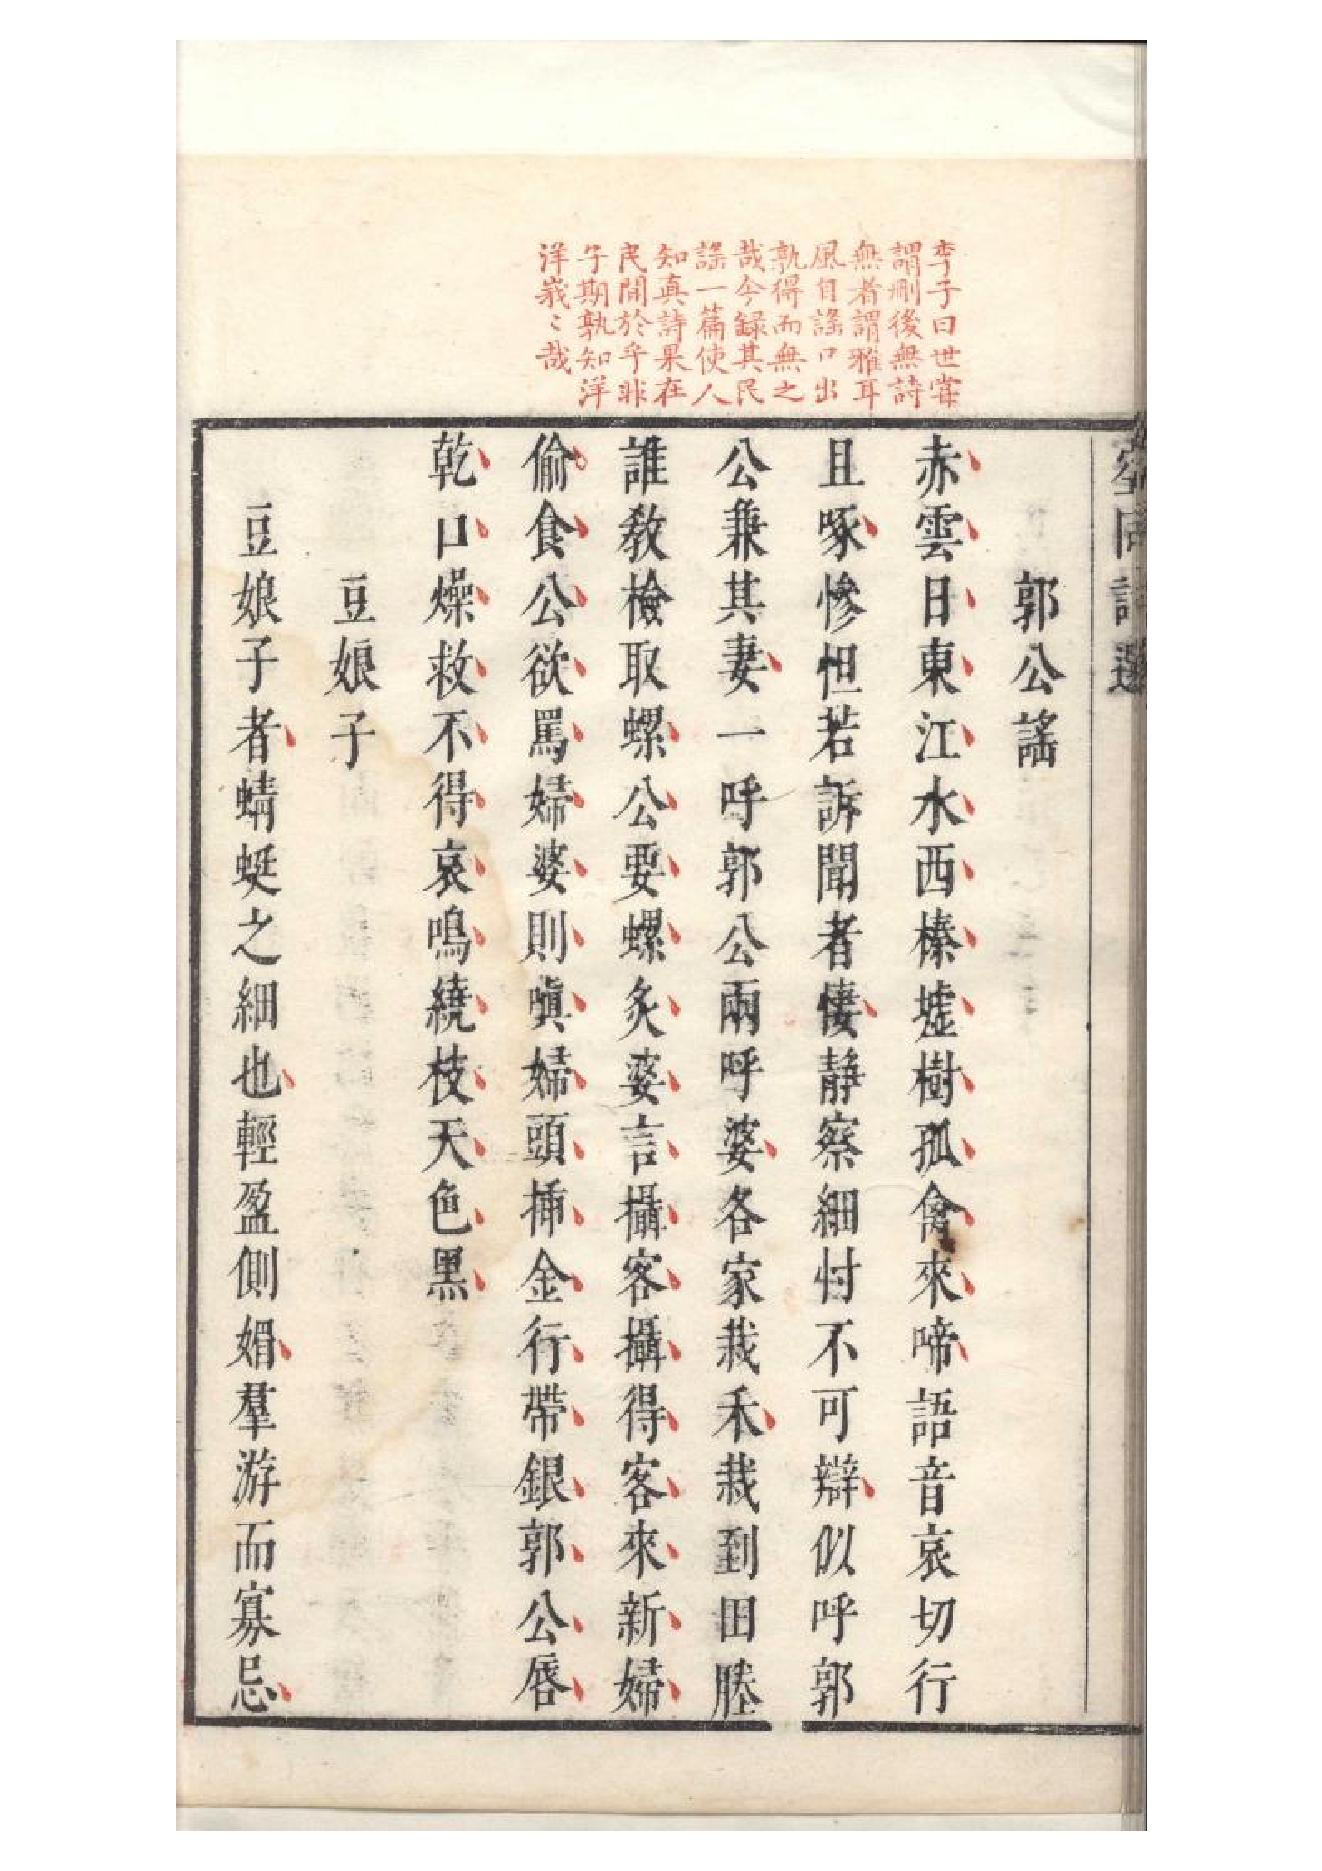 李子曰世嘗
謂刪後無詩
無者謂雅耳
風自謠口出
孰得而無之
哉今録其民
謠一篇使人
知真詩果在
民間於乎非
子期孰知洋
洋峩〻哉
空同詩選
郭公謠
赤雲日東江水西榛墟樹孤禽來啼語音哀切行
且啄慘怛若訴聞者悽靜察細忖不可辯似呼郭
公兼其妻一呼郭公兩呼婆各家栽禾栽到田塍
誰教檢取螺公要螺炙婆言攝客攝得客來新婦
偷食公欲罵婦婆則嗔婦頭揷金行帶銀郭公唇
乾口燥救不得哀鳴繞枝天色黑
豆娘子
豆娘子者蜻蜓之細也輕盈側媚羣游而寡忌